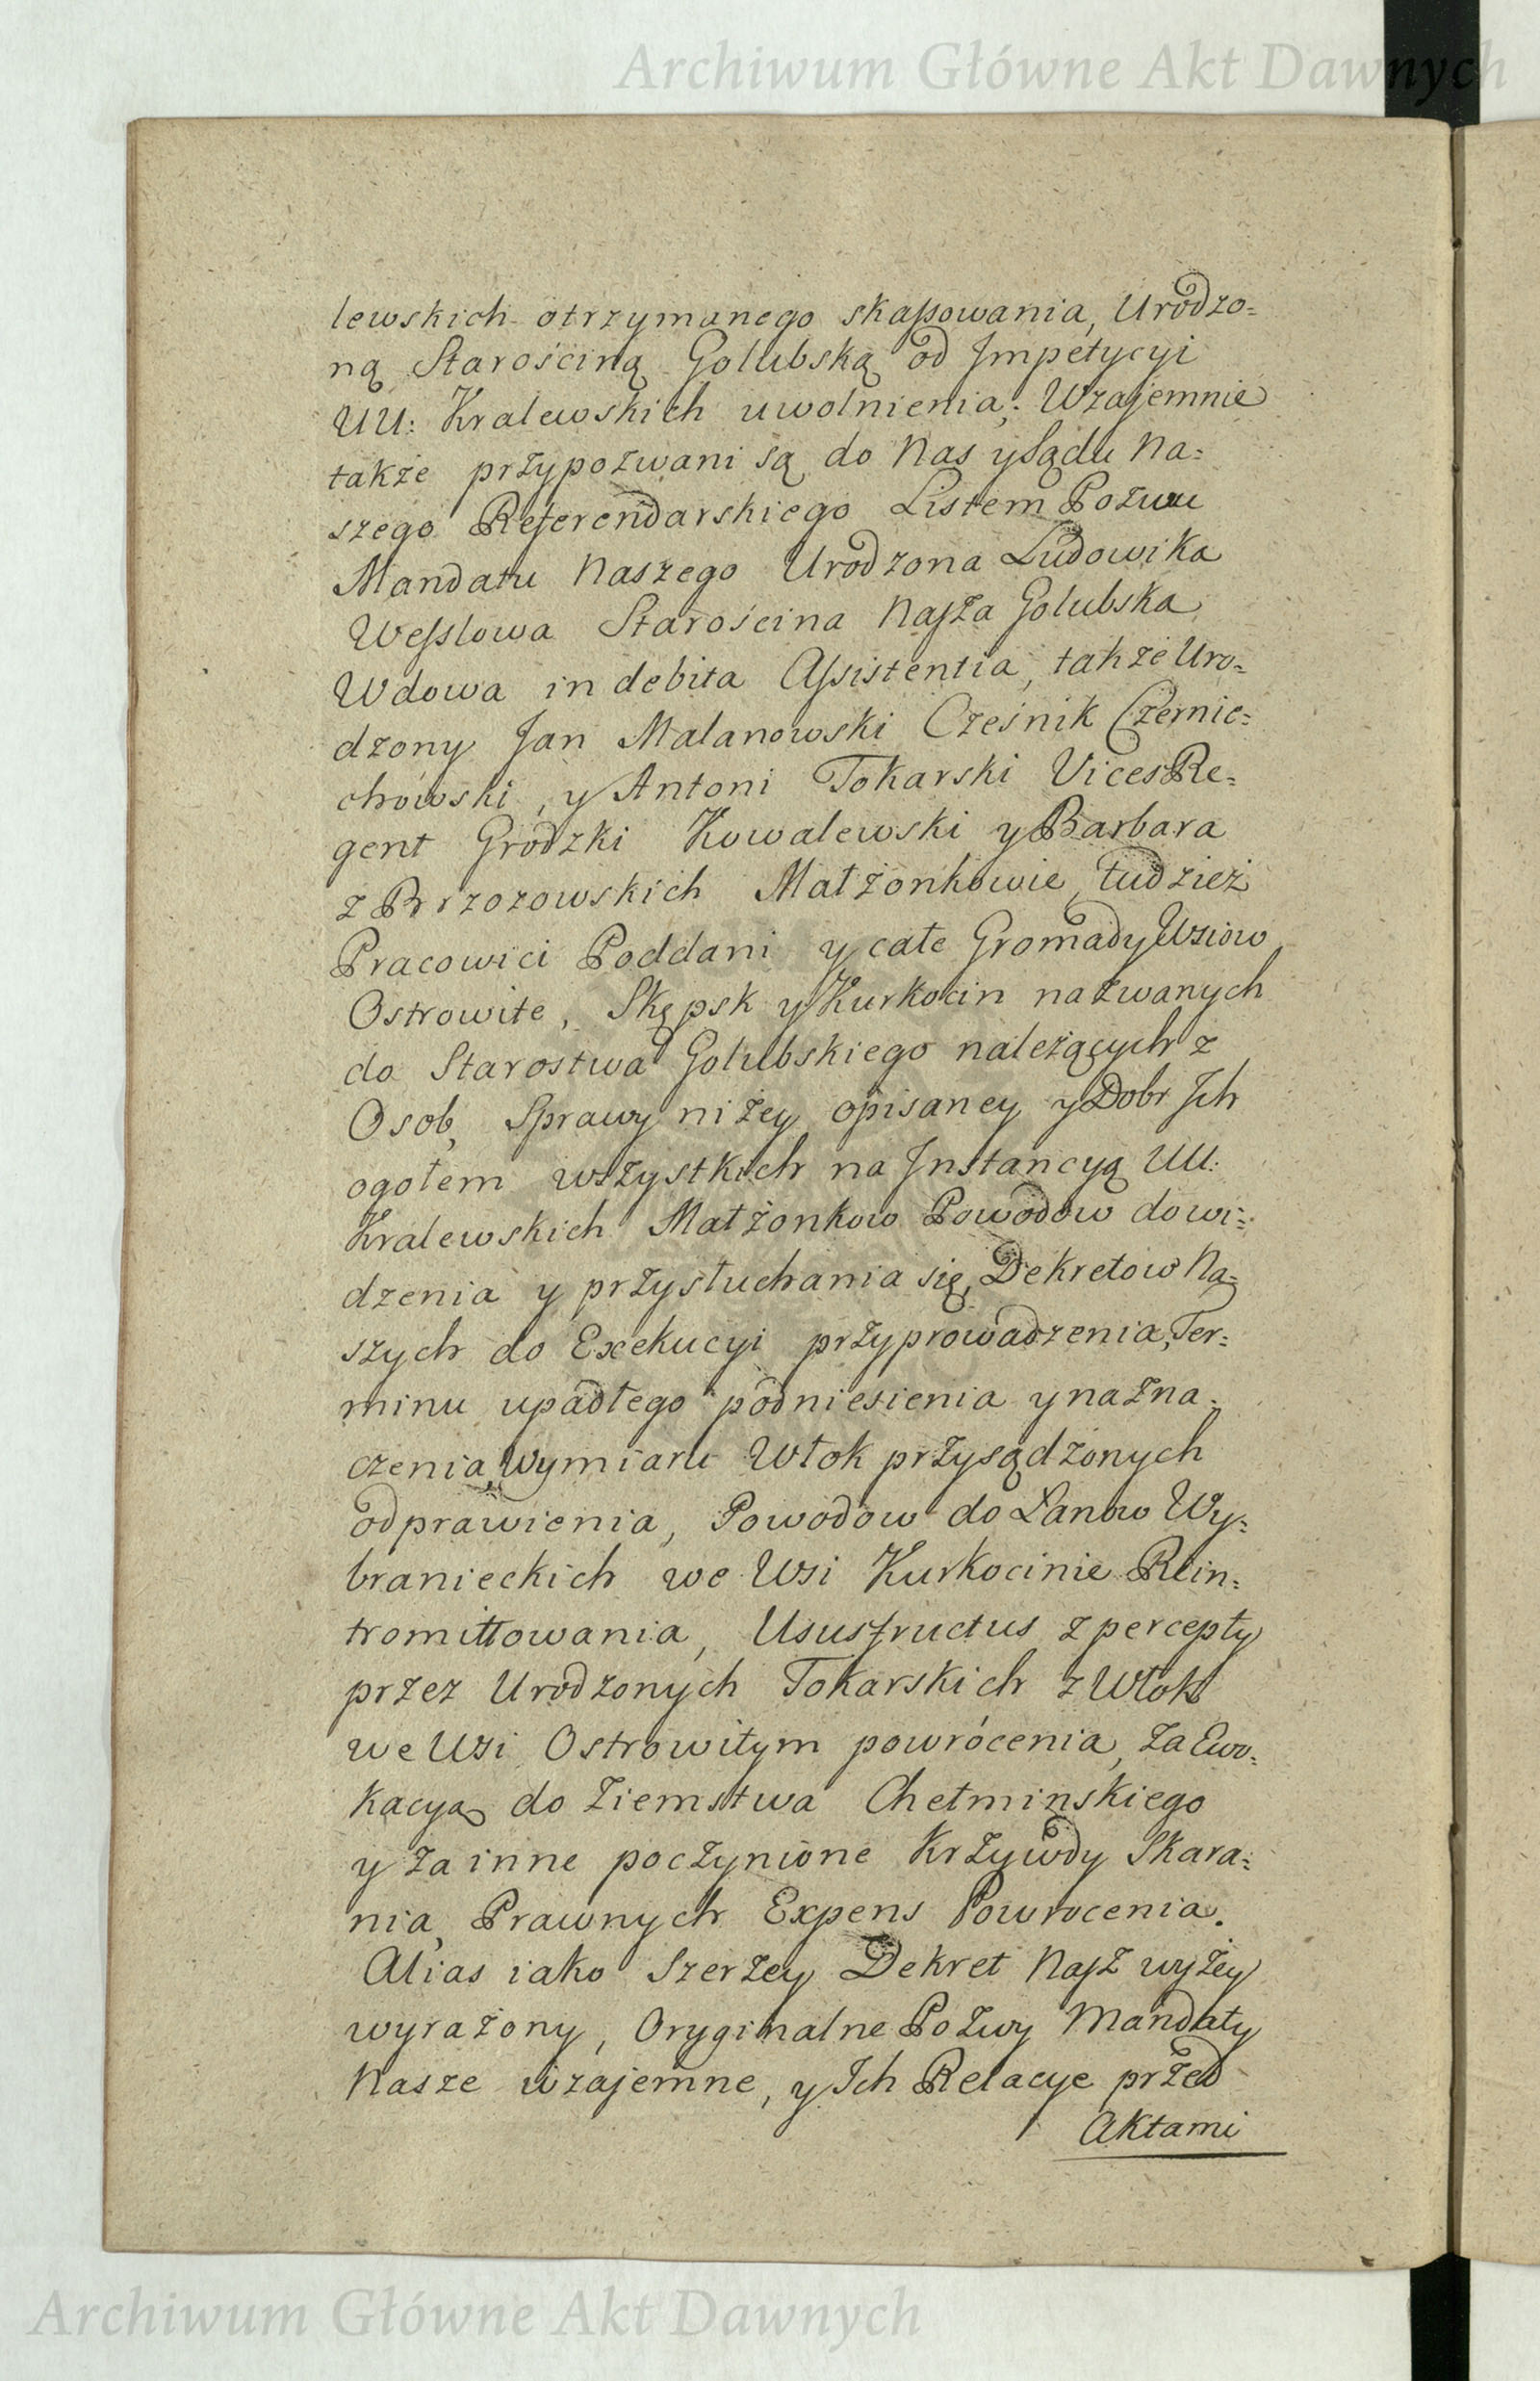 Archiwum Główne Akt Dawnych
lewskich otrzymanego skaſsowania, Urodzo=
ną Starościną Golubską od Jmpetycyi
UU: Kralewskich uwolnienia; Wzajemnie
także przypozwani są do Nas y Sądu Na=
szego Referendarskiego Listem Pozwu
Mandatu Naszego Urodzona Ludowika
Weſslowa Starościna Naſza Golubska
Wdowa in debita Aſsistentia, także Uro=
dzony Jan Malanowski Cześnik Czernie=
chówski, y Antoni Tokarski Vices Re=
gent Grodzki Kowalewski y Barbara
z Brzozowskich Małżonkowie, tudzież
Pracowici Poddani y całe Gromady Wsiow
Ostrowite, Skępsk y Kurkocin nazwanych
do Starostwa Golubskiego należących z
Osob, Sprawy niżey opisaney y Dobr Jch
ogołem wszystkich na Jnstancyą UU:
Kralewskich Małżonkow Powodow do wi=
dzenia y przysłuchania się, Dekretow Na=
szych do Exekucyi przyprowadzenia, Ter=
minu upadłego podniesienia y nazna=
czenia, Wymiaru Włok przysądzonych
odprawienia, Powodow do Łanow Wy=
branieckich we Wsi Kurkocinie Rein=
tromittowania, Ususfructus z percepty
przez Urodzonych Tokarskich z Włok
we Wsi Ostrowitym powrócenia, za Ewo=
kacyą do Ziemstwa Chełminskiego
y za inne poczynione Krzywdy Skara=
nia, Prawnych Expens Powrocenia.
Alias iako szerzey Dekret Naſz wyżey
wyrażony, Oryginalne Pozwy Mandaty
Nasze wzajemne, y Jch Relacye przed
Aktami
Archiwum Główne Akt Dawnych